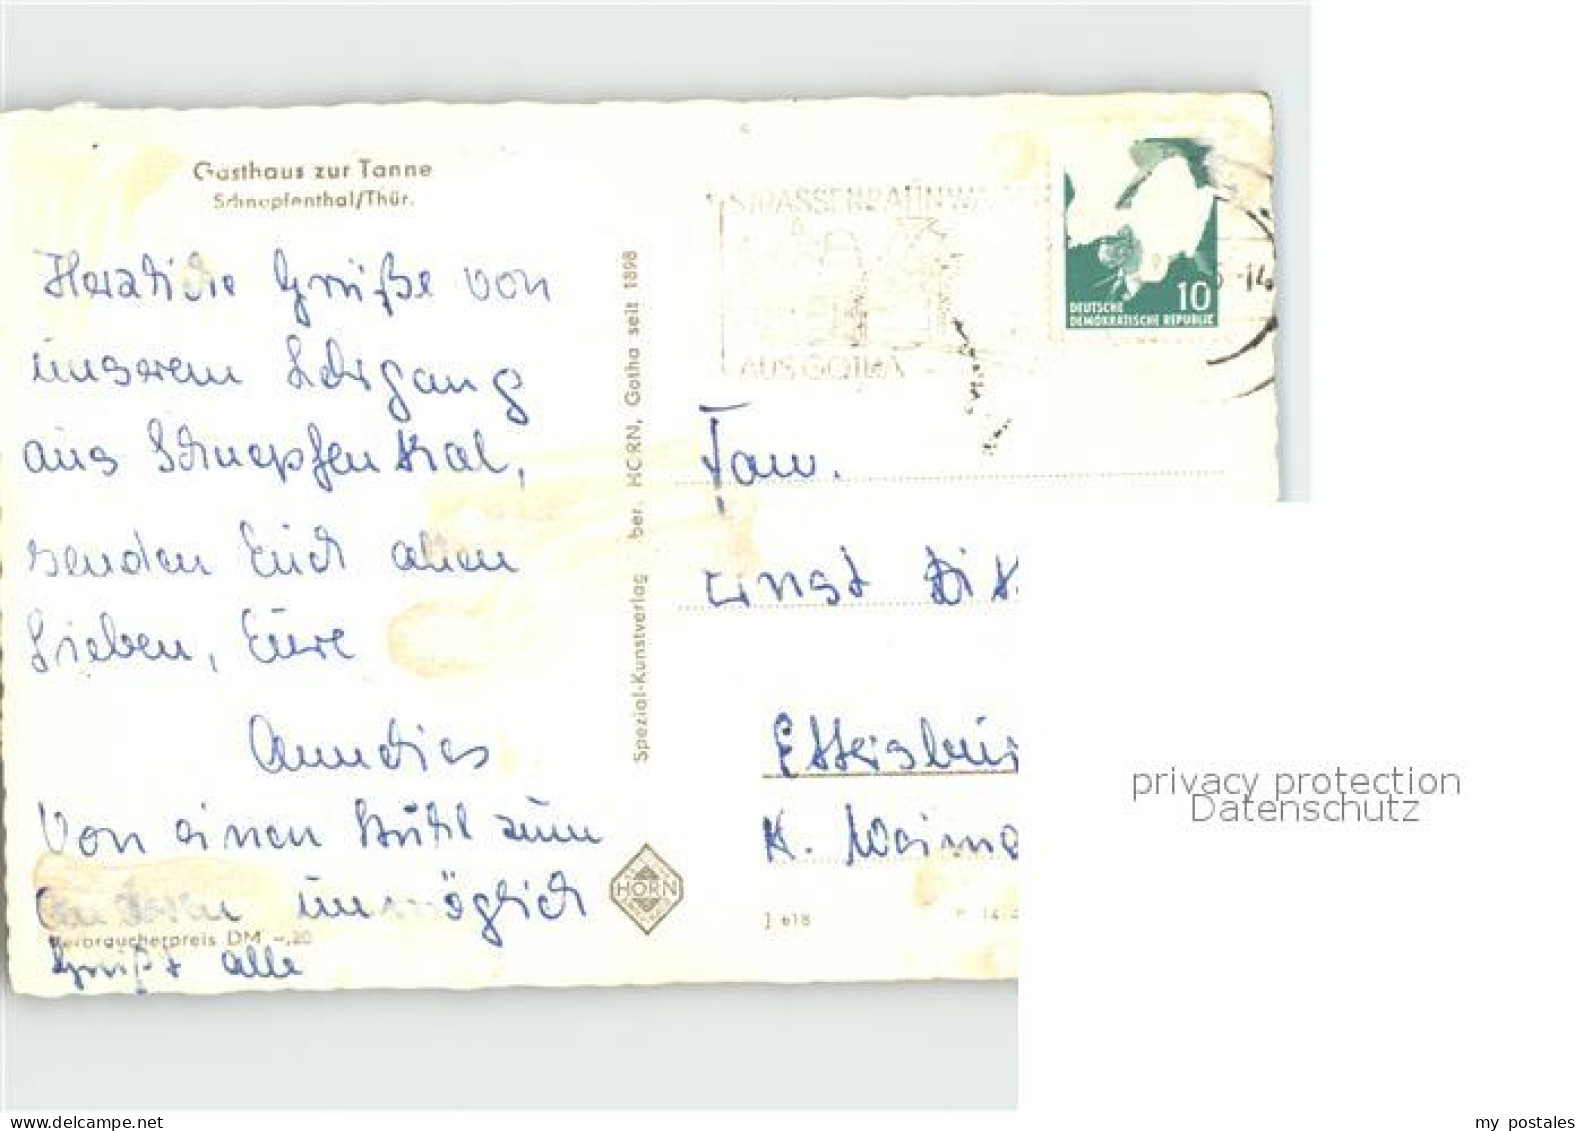 Gasthaus zur Tanne
Schnepfenthal/Thür.
Herzliche Grüße von
unserem Lehrgang
aus Schnepfenthal,
senden Euch allen
Lieben, Eure
Annelies
Von einen Stühl zum
andern unmöglich
Verbraucherpreis DM -,20
Grüßt alle
Spezial-Kunstverlag ber. HORN, Gotha seit 1898
HORN
STRASSENBAHNWA
AUS GOTHA
10
DEUTSCHE
DEMOKRATISCHE REPUBLIK
-14
Fam.
Ernst
Ettersbur
K. Weima
J 618
privacy protection
Datenschutz
my postales